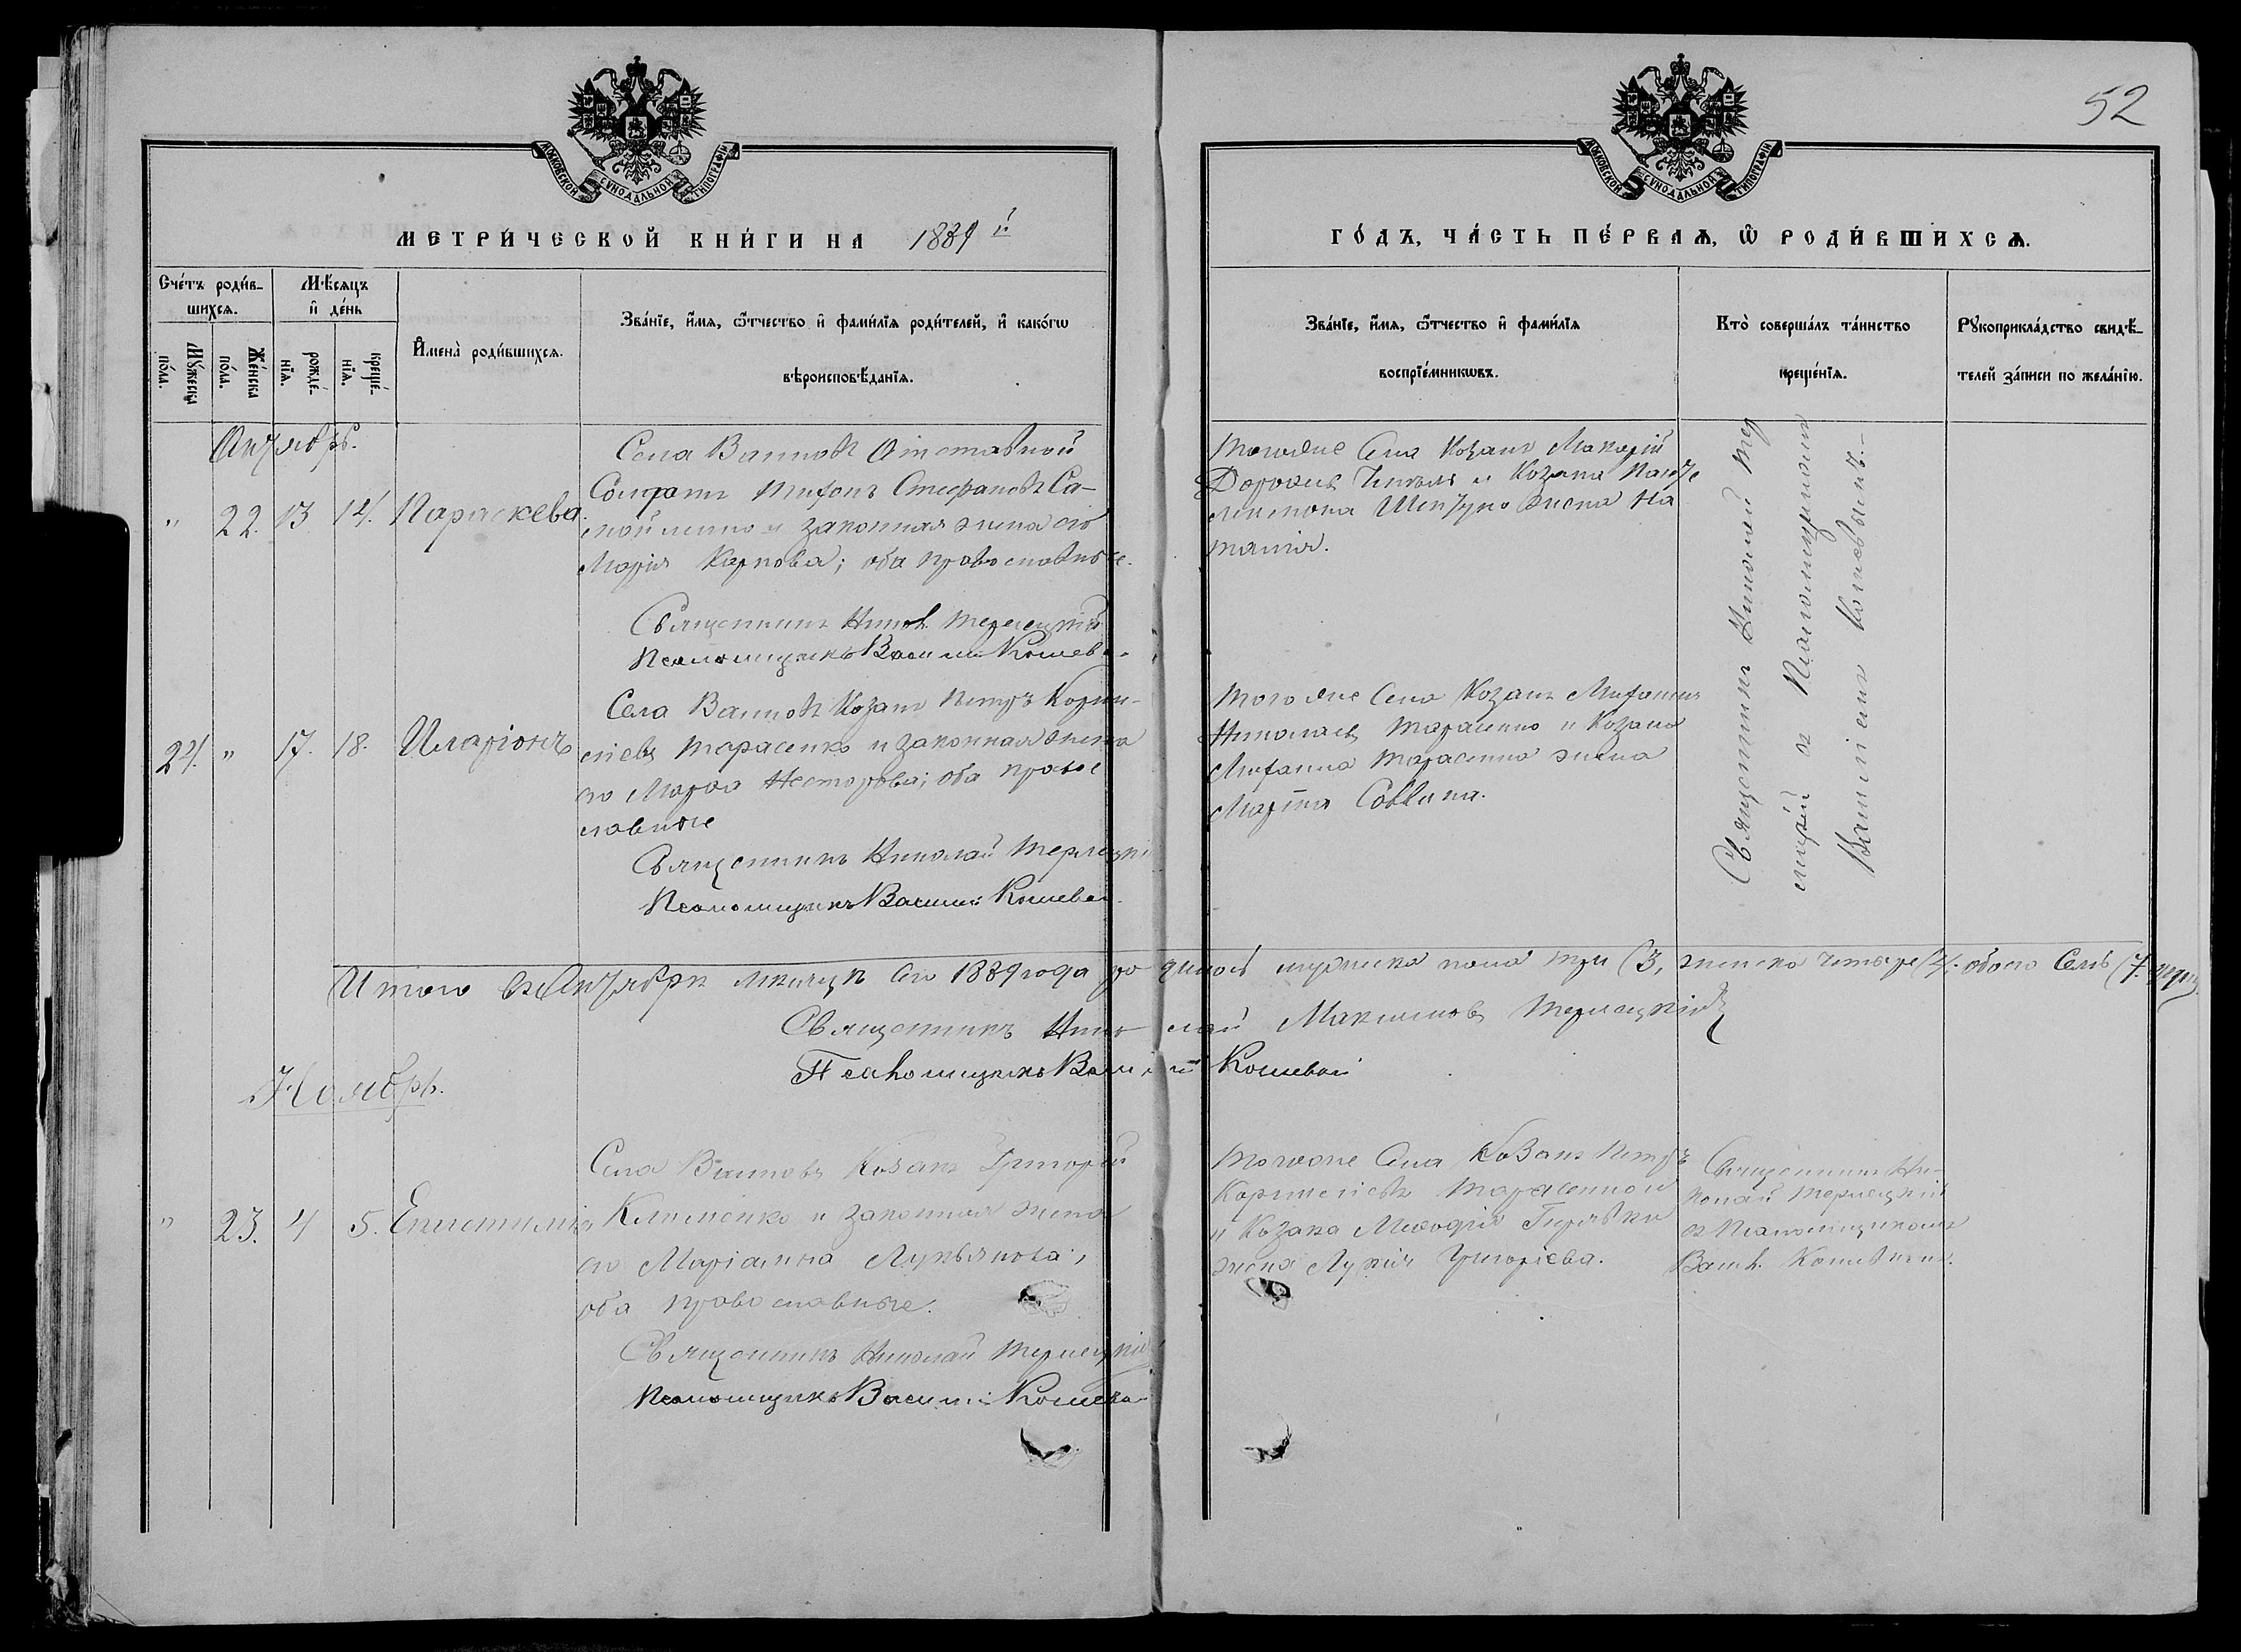 52
МОСКОВСКОЙ СУНОДАЛЬНОЙ ТИПОГРАФІИ
МОСКОВСКОЙ СУНОДАЛЬНОЙ ТИПОГРАФІИ
МЕТРИ́ЧЕСКОЙ КНИ́ГИ НА 1889 й
ГО́ДЪ, ЧА́СТЬ ПЕ́РВАѦ, Ѿ РОДИ́ВШИХСѦ.
Сче́тъ роди́в-
шихсѧ.
Мѣ́сѧцъ
и҆ де́нь
Мꙋ́жеска
по́ла.
Же́нска
по́ла.
рожде́-
нїѧ.
креще́-
нїѧ.
И҆мена̀ роди́вшихсѧ.
Зва́нїе, и҆́мѧ, ѻ҆́тчество и҆ фами́лїѧ роди́телей, и҆ како́гѡ
вѣроисповѣ́данїѧ.
Зва́нїе, и҆́мѧ, ѻ҆́тчество и҆ фами́лїѧ
воспрїе́мникѡвъ.
Кто̀ соверша́лъ та́инство
креще́нїѧ.
Рꙋкоприкла́дство свидѣ́-
телей за́писи по жела́нїю.
Октябрь.
" 22. 13 14. Параскева.
Села Отставной
Солдатъ Тихонъ Стефановъ Са-
мойленко и законная жена его
Марія Карпова; оба православные.
Священникъ Никол. Терлецкій
Псаломщикъ Василий Кошевой
Тогоже Села Козакъ Макарій
и Козака
жена На
талія.
Священникъ Николай Тер
лецкій съ Псаломщикомъ
Василіемъ Кошевымъ.-
24. " 17. 18. Иларіонъ
Села Козакъ Петръ Корни-
еліевъ Тарасенко и законная жена
его Марѳа Несторова; оба право
славные
Священникъ Николай Терлецкій
Псаломщикъ Василий Кошевой
Тогоже Села Козакъ
Николаевъ Тарасенко и Козака
Тарасенка жена
Савина.
Итого въ Октябрѣ мѣсяцѣ сего 1889 года родилось мужеска пола три (3, женска четыре (4. обоего Семь (7.
Священникъ Николай Максимовъ Терлецкій
Псаломщикъ Василий Кошевой
Ноябрь.
" 23. 4 5. Епистимія
Села Козакъ Григорій
Клименко и законная жена
его Маріанна Лукьянова;
оба православные.
Священникъ Николай Терлецкій
Псаломщикъ Василий Кошевой
Тогоже Села Козакъ Петръ
Корниліевъ Тарасенко
и Козака Меѳодія
жена Лукія Григоріева.
Священникъ Ни-
колай Терлецкій
съ Псаломщикомъ
Васил. Кошевымъ.